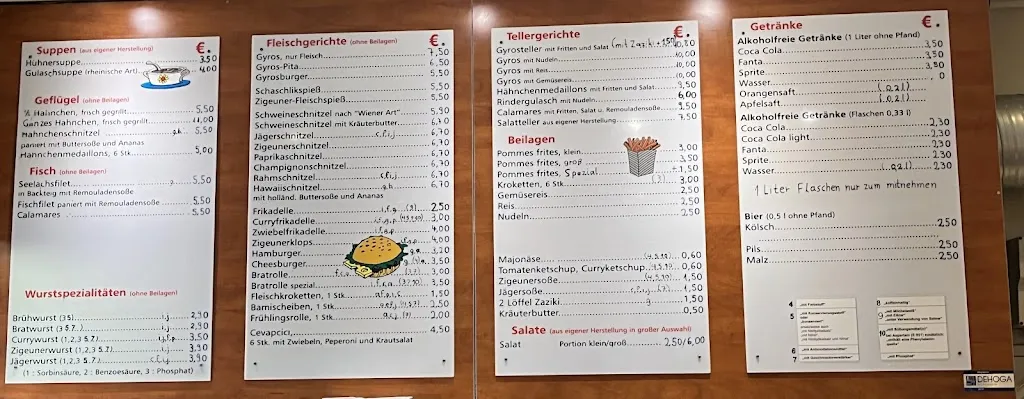 Suppen (aus eigener Herstellung) €.
Hühnersuppe 3,50
Gulaschsuppe (rheinische Art) 4,00
Geflügel (ohne Beilagen)
½ Hähnchen, frisch gegrillt 5,50
Ganzes Hähnchen, frisch gegrillt 11,00
Hähnchenschnitzel g.h. 5,50
paniert mit Buttersoße und Ananas
Hähnchenmedaillons, 6 Stk. 5,00
Fisch (ohne Beilagen)
Seelachsfilet 5,50
in Backteig mit Remouladensoße
Fischfilet paniert mit Remouladensoße 5,50
Calamares 5,50
Wurstspezialitäten (ohne Beilagen)
Brühwurst (3 5) i.j. 2,90
Bratwurst (3 5 7) i.j. 2,90
Currywurst (1,2,3 5 7) i.j.f. 3,90
Zigeunerwurst (1,2,3 5 7) i.j. 3,90
Jägerwurst (1,2,3 5 7) 3,90
(1 : Sorbinsäure, 2 : Benzoesäure, 3 : Phosphat)
Fleischgerichte (ohne Beilagen) €.
Gyros, nur Fleisch 7,50
Gyros-Pita 6,50
Gyrosburger 5,50
Schaschlikspieß 5,50
Zigeuner-Fleischspieß 5,50
Schweineschnitzel nach "Wiener Art" 5,90
Schweineschnitzel mit Kräuterbutter 6,70
Jägerschnitzel c.f.i.j 6,70
Zigeunerschnitzel 6,70
Paprikaschnitzel 6,70
Champignonschnitzel 6,70
Rahmschnitzel c.f.i.j 6,70
Hawaiischnitzel g.h. 6,70
mit holländ. Buttersoße und Ananas
Frikadelle 2,50
Curryfrikadelle 3,00
Zwiebelfrikadelle 4,00
Zigeunerklops 4,00
Hamburger 3,20
Cheesburger 3,50
Bratrolle 3,00
Bratrolle spezial 3,50
Fleischkroketten, 1 Stk. 1,50
Bamischeiben, 1 Stk. 2,50
Frühlingsrolle, 1 Stk. 2,00
Cevapcici 4,50
6 Stk. mit Zwiebeln, Peperoni und Krautsalat
Tellergerichte €.
Gyrosteller mit Fritten und Salat (mit Zaziki +1,50) 10,80
Gyros mit Nudeln 10,00
Gyros mit Reis 10,00
Gyros mit Gemüsereis 10,00
Hähnchenmedaillons mit Fritten und Salat 9,50
Rindergulasch mit Nudeln 6,00
Calamares mit Fritten, Salat u. Remouladensoße 9,50
Salatteller aus eigener Herstellung 7,50
Beilagen
Pommes frites, klein 3,00
Pommes frites, groß 3,50
Pommes frites, Spezial +1,50
Kroketten, 6 Stk. (3) 3,00
Gemüsereis 2,50
Reis 2,50
Nudeln 2,50
Majonäse (4,5,9,10) 0,60
Tomatenketchup, Curryketchup 0,60
Zigeunersoße 1,50
Jägersoße 1,50
2 Löffel Zaziki g 1,50
Kräuterbutter 0,50
Salate (aus eigener Herstellung in großer Auswahl)
Salat Portion klein/groß 2,50/6,00
Getränke €.
Alkoholfreie Getränke (1 Liter ohne Pfand)
Coca Cola 3,50
Fanta 3,50
Sprite 3,50
Wasser
Orangensaft (0,2l)
Apfelsaft (0,2l)
Alkoholfreie Getränke (Flaschen 0,33 l)
Coca Cola 2,30
Coca Cola light 2,30
Fanta 2,30
Sprite 2,30
Wasser (0,2l) 2,30
1 Liter Flaschen nur zum mitnehmen
Bier (0,5 l ohne Pfand)
Kölsch 2,50
Pils 2,50
Malz 2,50
4
5
6
7
8
9
10
DEHOGA